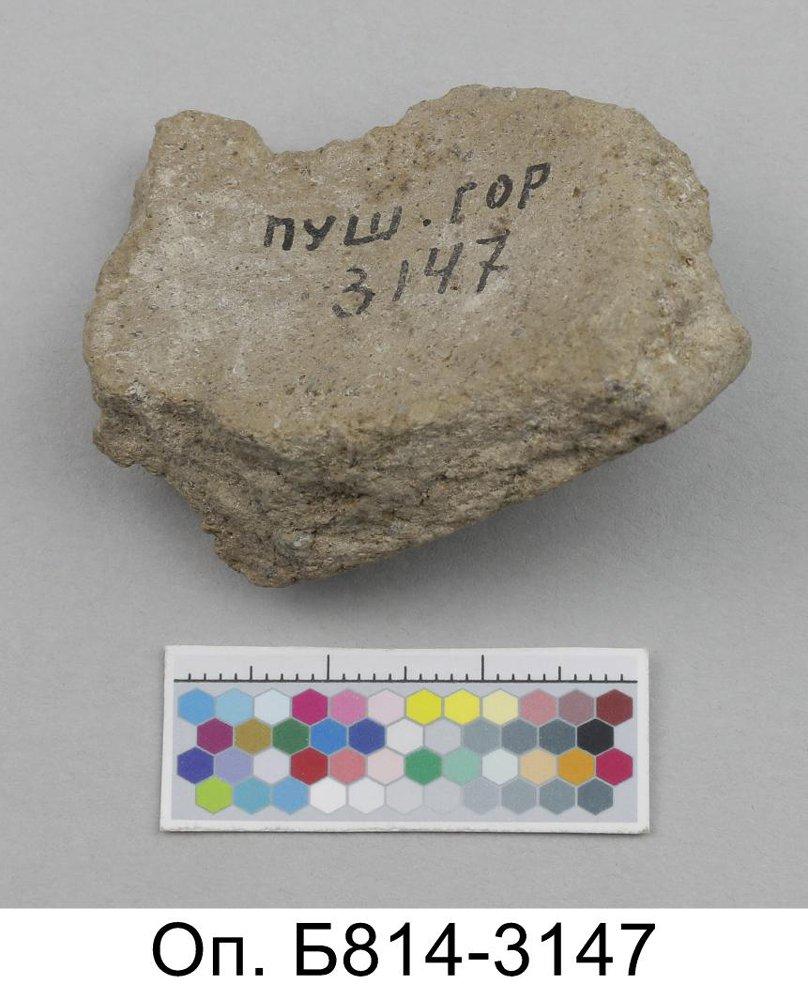 ПУШ. ГОР
3147
Оп. Б814-3147